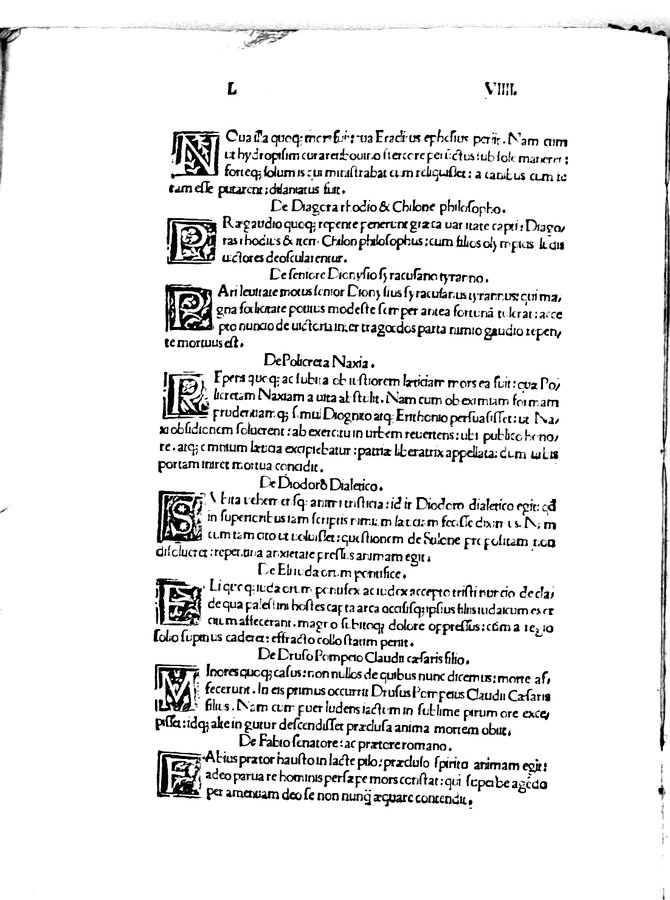 L VIIII.
NOua illa quoq; mors fuit: qua Eraclitus ephesius periit. Nam cum
ut hydropisim curaret bouino stercore perūctus sub sole maneret:
forteq; solum is qui ministrabat eum reliquisset: a canibus cum fe
ram esse putarent: dilaniatus fuit.
De Diagora rhodio & Chilone philosopho.
PRægaudio quoq; repente perierunt græca uanitate capti: Diago/
ras rhodius & item Chilon philosophus: cum filios olympicis ludis
uictores deoscularentur.
De seniore Dionysio syracusano tyranno.
PAri leuitate motus senior Dionysius syracusanus tyrannus: qui ma/
gna sæleritate potitus modeste semper antea fortunā tulerat: acce
pto nuncio de uictoria inter tragœdos parta nimio gaudio repen/
te mortuus est.
De Policreta Naxia.
REpens quoq; ac subita ob iustiorem læticiam mors ea fuit: qua Po/
licretam Naxiam a uita abstulit. Nam cum ob eximiam formam
prudentiamq; simul Diognito atq; Erithonio persuasisset: ut Na/
xi obsidionem soluerent: ab exercitu in urbem reuertens: ubi publico hono/
re. atq; omnium læticia excipiebatur: patriæ liberatrix appellata: dum urbis
portam intret mortua concidit.
De Diodoro Dialetico.
SVbita uehemensq; animi tristicia: id in Diodoro dialetico egit: qd
in superioribus iam scriptis nimium læticiam fecisse diximus. Nam
cum tam cito ut uoluisset: quæstionem de Stilpone propositam non
dissolueret: repentina anxietate pressus animam egit.
De Eli iudæorum pontifice.
ELi quoq; iudæorum pontifex ac iudex accepto tristi nuncio de cla/
de qua palestini hostes capta arca occisisq; ipsius filiis iudaicum exer
citum affecerant. magno subitoq; dolore oppressus: cum a regio
solio supinus caderet: effracto collo statim periit.
De Druso Pompeio Claudii cæsaris filio.
MInores quoq; casus: non nullos de quibus nunc dicemus: morte af/
fecerunt. In eis primus occurrit Drusus Pompeius Claudii Cæsaris
filius. Nam cum puer ludens iactum in sublime pirum ore exce/
pisset: idq; alte in gutur descendisset præclusa anima mortem obiit.
De Fabio senatore: ac prætore romano.
FAbius prætor hausto in lacte pilo: præcluso spirito animam egit:
adeo parua re hominis persæpe mors constat: qui superbe agēdo
per amentiam deo se non nunq̄ æquare contendit.